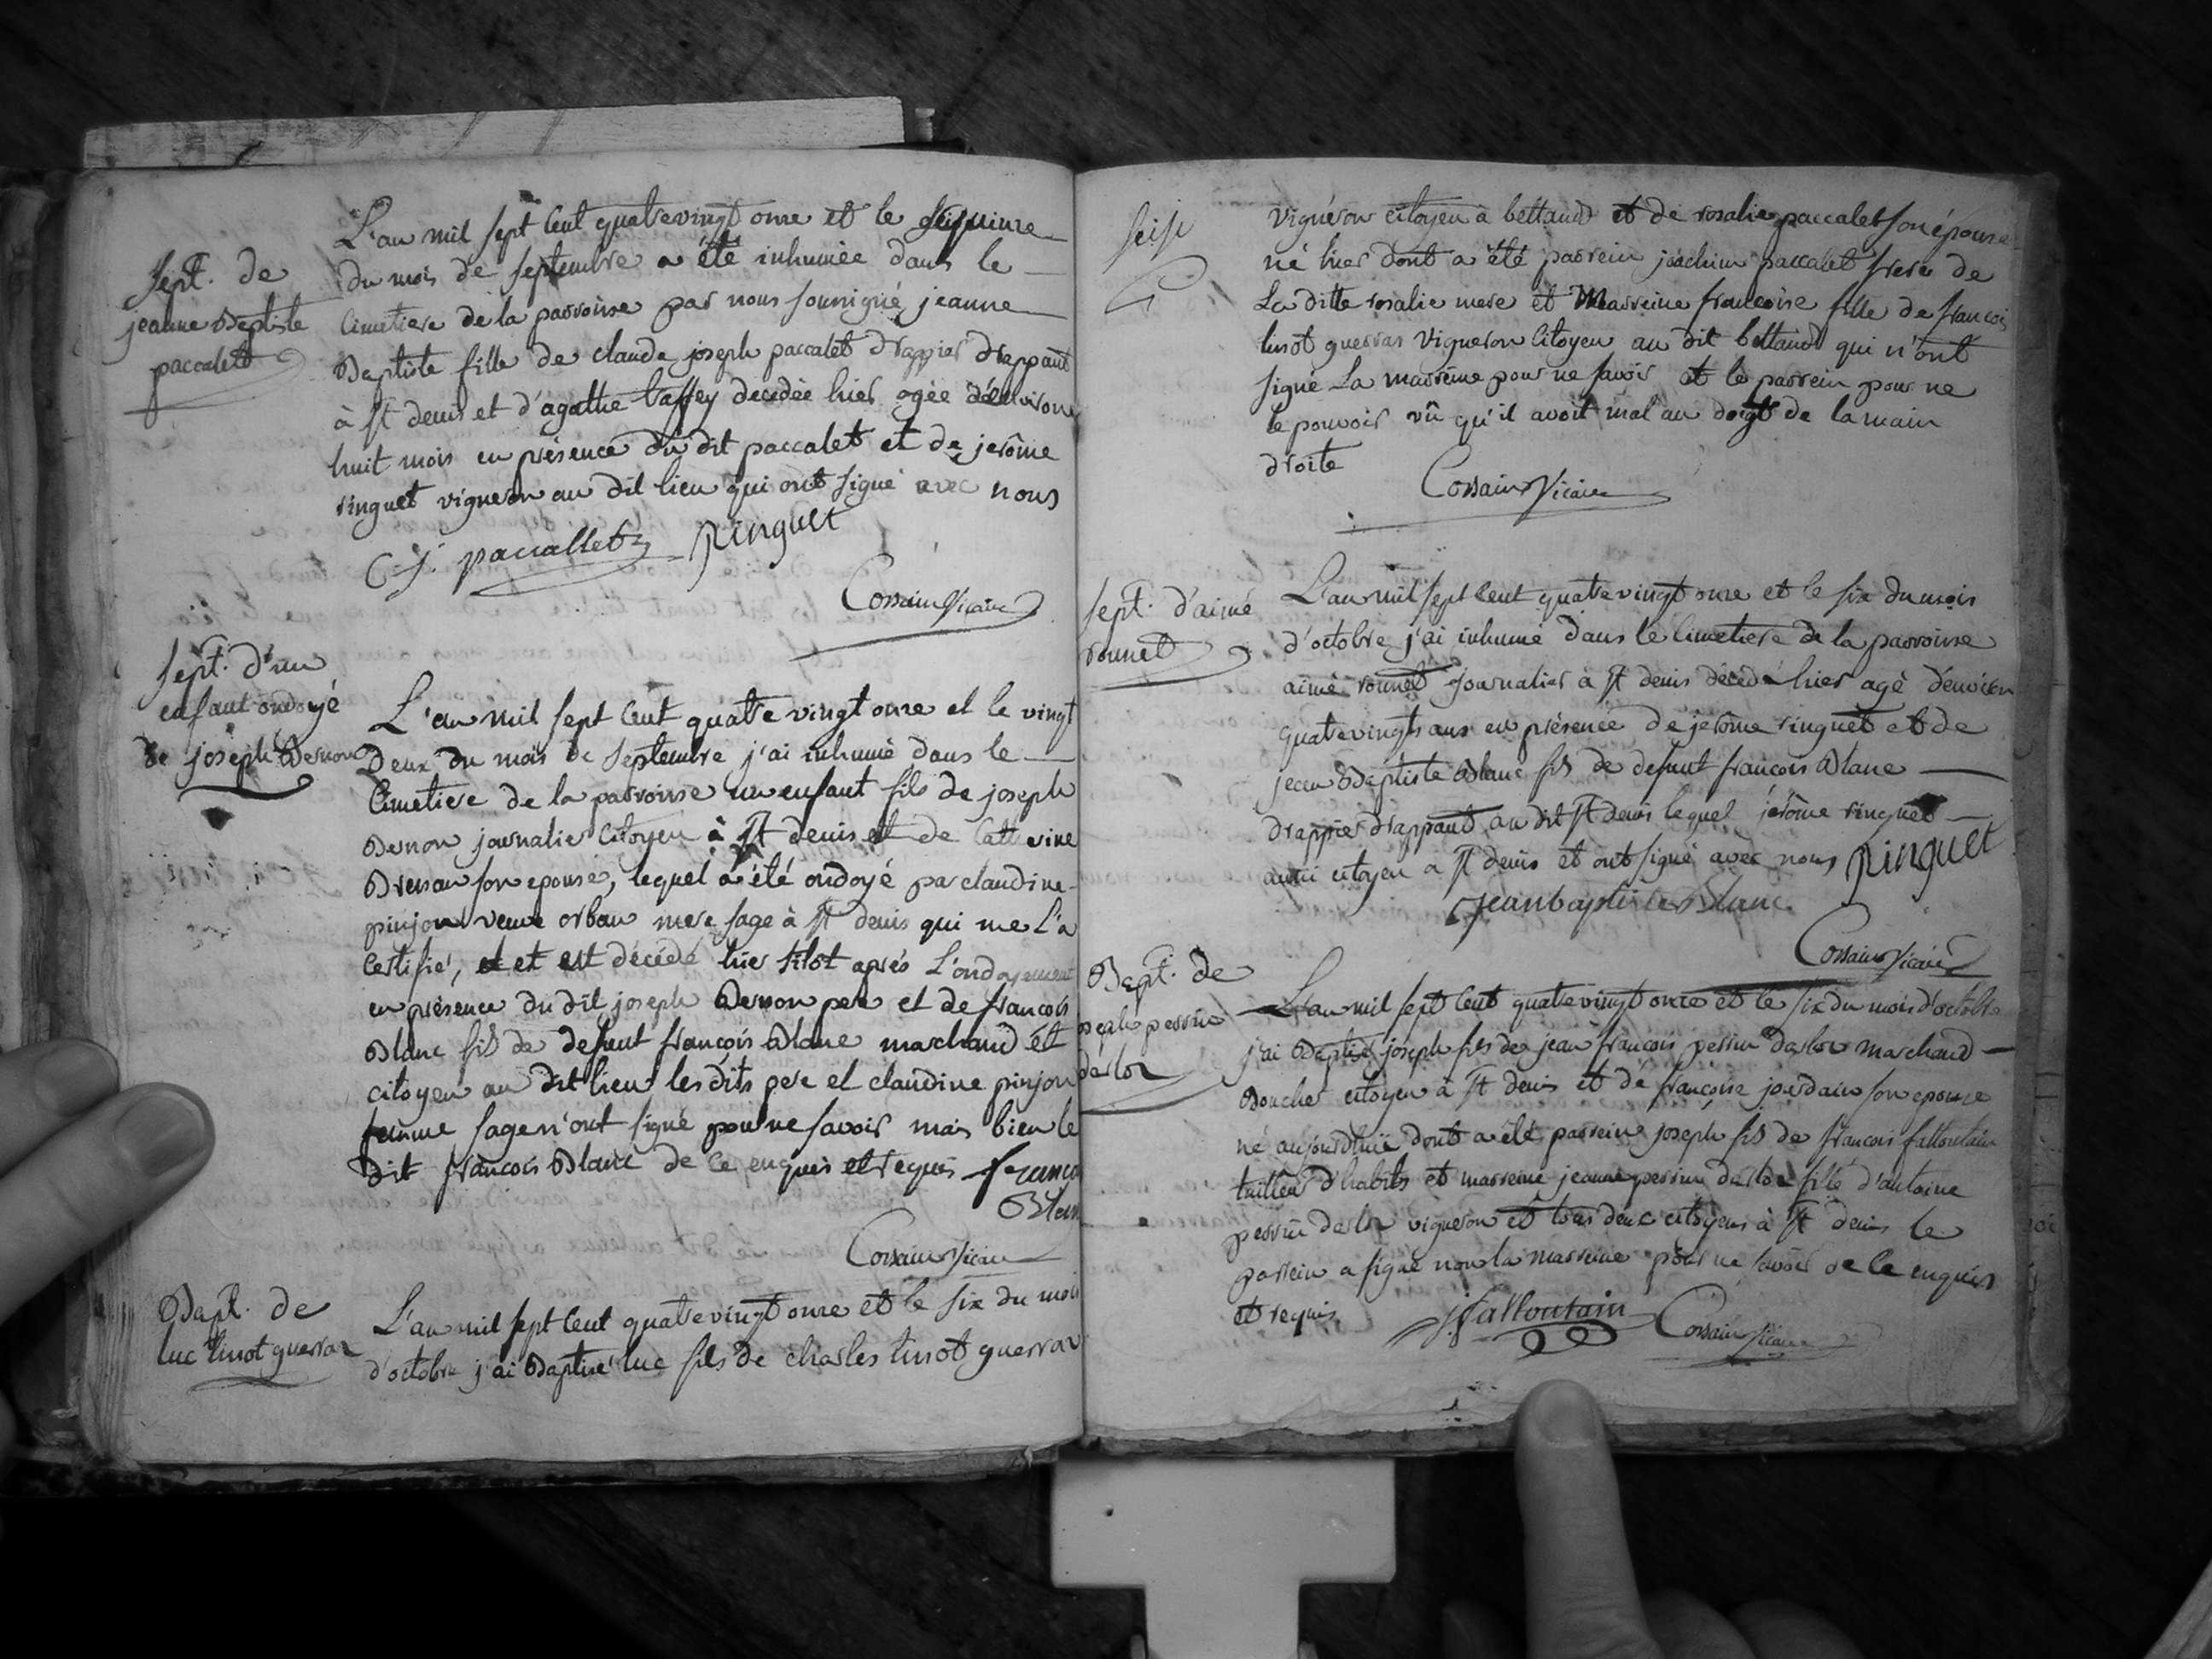 Sept. de
jeanne Baptiste
paccalet
L'an mil sept cent quatrevingt onze et le
du mois de septembre a été inhumée dans le
cimetiere de la parroisse par nous soussigné jeanne
Baptiste fille de claude joseph paccalet drappier drappant
à St denis et d'agathe taffey decedée hier agée d'environ
huit mois en présence du dit paccalet et de jerôme
ringuet vigneron au dit lieu qui ont signé avec nous
C. j. paccallet Ringuet
Cossain Vicaire
Sept. d'un
enfant ondoyé
de joseph Bernon
L'an mil sept cent quatre vingt onze et le vingt
deux du mois de septembre j'ai inhumé dans le
cimetiere de la parroisse un enfant fils de joseph
Bernon journalier citoyen à St denis et de Catterine
son epouse, lequel a été ondoyé par claudine
pinjon veuve orban mere sage à St denis qui me l'a
certifié, et est décédé hier sitot après l'ondoyement
en présence du dit joseph Bernon pere et de francois
Blanc fils de defunt francois Blanc marchand et
citoyen au dit lieu les dits pere et claudine pinjon
femme sage n'ont signé pour ne savoir mais bien le
dit francois Blanc de ce enquis et requis franco
Blan
Cossain Vicaire
Bapt. de
luc tinot guerraz
L'an mil sept cent quatrevingt onze et le six du mois
d'octobre j'ai Baptisé luc fils de charles tinot guerraz
seise
vigneron citoyen à bettand et de rosalie paccalet son épouse
né hier dont a été parrein joachim paccalet frere de
La ditte rosalie mere et Marreine francoise fille de francois
tinot guerraz vigneron citoyen au dit bettand qui n'ont
signé La marreine pour ne savoir et le parrein pour ne
le pouvoir vû qu'il avoit mal au doigt de la main
droite
Cossain Vicaire
Sept. d'aimé
ronnet
L'an mil sept cent quatrevingt onze et le six du mois
d'octobre j'ai inhumé dans le cimetiere de la parroisse
aimé ronnet journalier à St denis décédé hier agé d'environ
quatrevingts ans en présence de jerôme ringuet et de
jean Baptiste Blanc fils de defunt francois Blanc
drappier drappant au dit St denis lequel jérôme ringuet
aussi citoyen à St denis et ont signé avec nous Ringuet
jean baptiste Blanc
Cossain Vicaire
Bapt. de
joseph perrin
darloz
L'an mil sept cent quatrevingt onze et le six du mois d'octobre
j'ai Baptisé joseph fils de jean francois perrin darloz marchand
Boucher citoyen à St denis et de françoise jourdain son epouse
né aujourdhui dont a été parrein joseph fils de francois falloutain
tailleur d'habits et marreine jeanne perrin darloz fille d'antoine
perrin darloz vigneron et tous deux citoyens à St denis le
parrein a signé non la marreine pour ne savoir de ce enquis
et requis j falloutain Cossain Vicaire